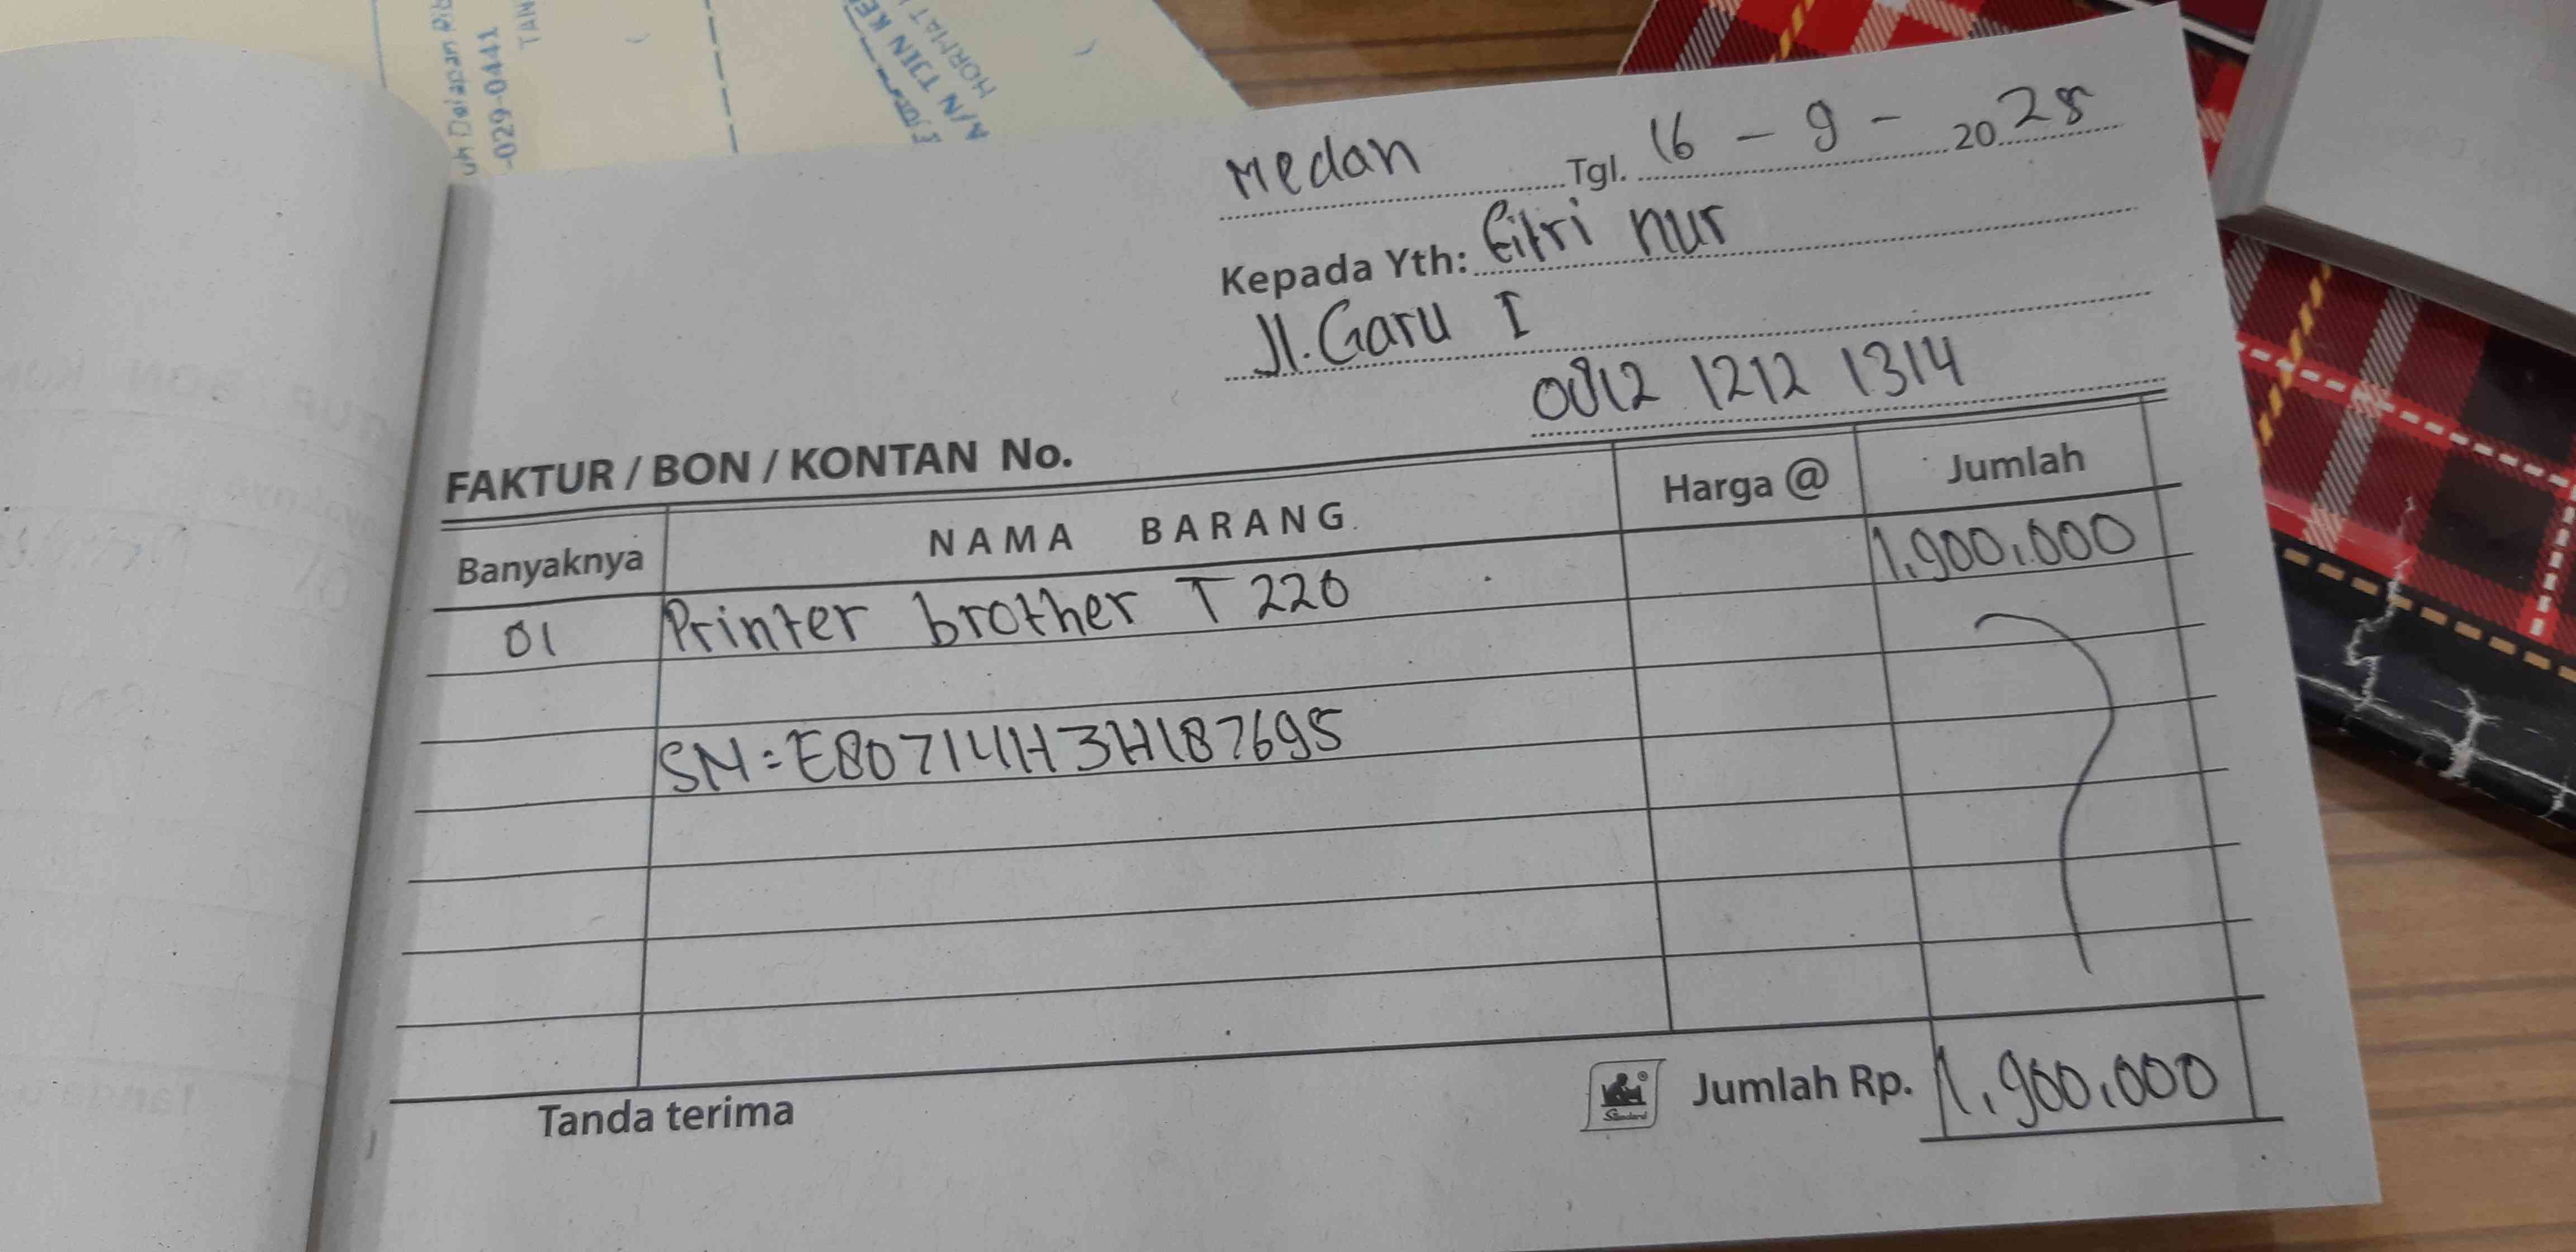 uh Delapan Rib
-029-0441
TAN
N/N TJEN KE
HORMAT
Medan Tgl. 16 - 9 - 2025
Kepada Yth: Fitri nur
Jl. Garu I
0812 1212 1314
FAKTUR / BON / KONTAN No.
Banyaknya NAMA BARANG Harga @ Jumlah
01 Printer brother T 220 1.900.000
SN = E80714H3H187695
Tanda terima Standard Jumlah Rp. 1.900.000